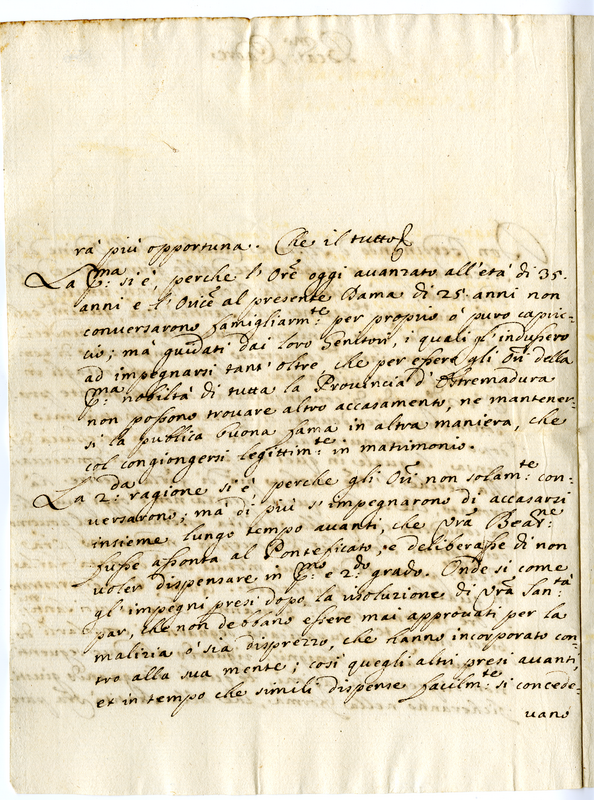 rà più opportuna. Che il tutto
La P:ma si è, perche l'Ore oggi auanzato all'età di 35.
anni e l'Orice al presente Dama di 25. anni non
conuersarono famigliarm:te per proprio ò puro capric-
cio; mà guidati dai loro Genitori, i quali gl'indussero
ad impegnarsi tant'oltre che per essere gli Ori della
P:ma nobiltà di tutta la Prouincia d'Estremadura
non possono trouare altro accasamento, ne mantener-
si la publica buona fama in altra maniera, che
col congiongersi legittim:te in matrimonio.
La 2:da ragione si è perche gli Ori non solam:te con-
uersarono; mà di più s'impegnarono di accasarsi
insieme lungo tempo auanti, che Vra Bear:ne
fusse assonta al Pontificato, e deliberasse di non
uoler dispensare in P:mo e 2:do grado. Onde si come
gl'impegni presi dopo la risoluzione di Vra San:tà
par, che non debbano essere mai approuati per la
malizia ò sia disprezzo, che hanno incorporato con-
tro alla sua mente; così quegli altri presi auanti,
et in tempo che simili dispense facilm:te si concede-
uano